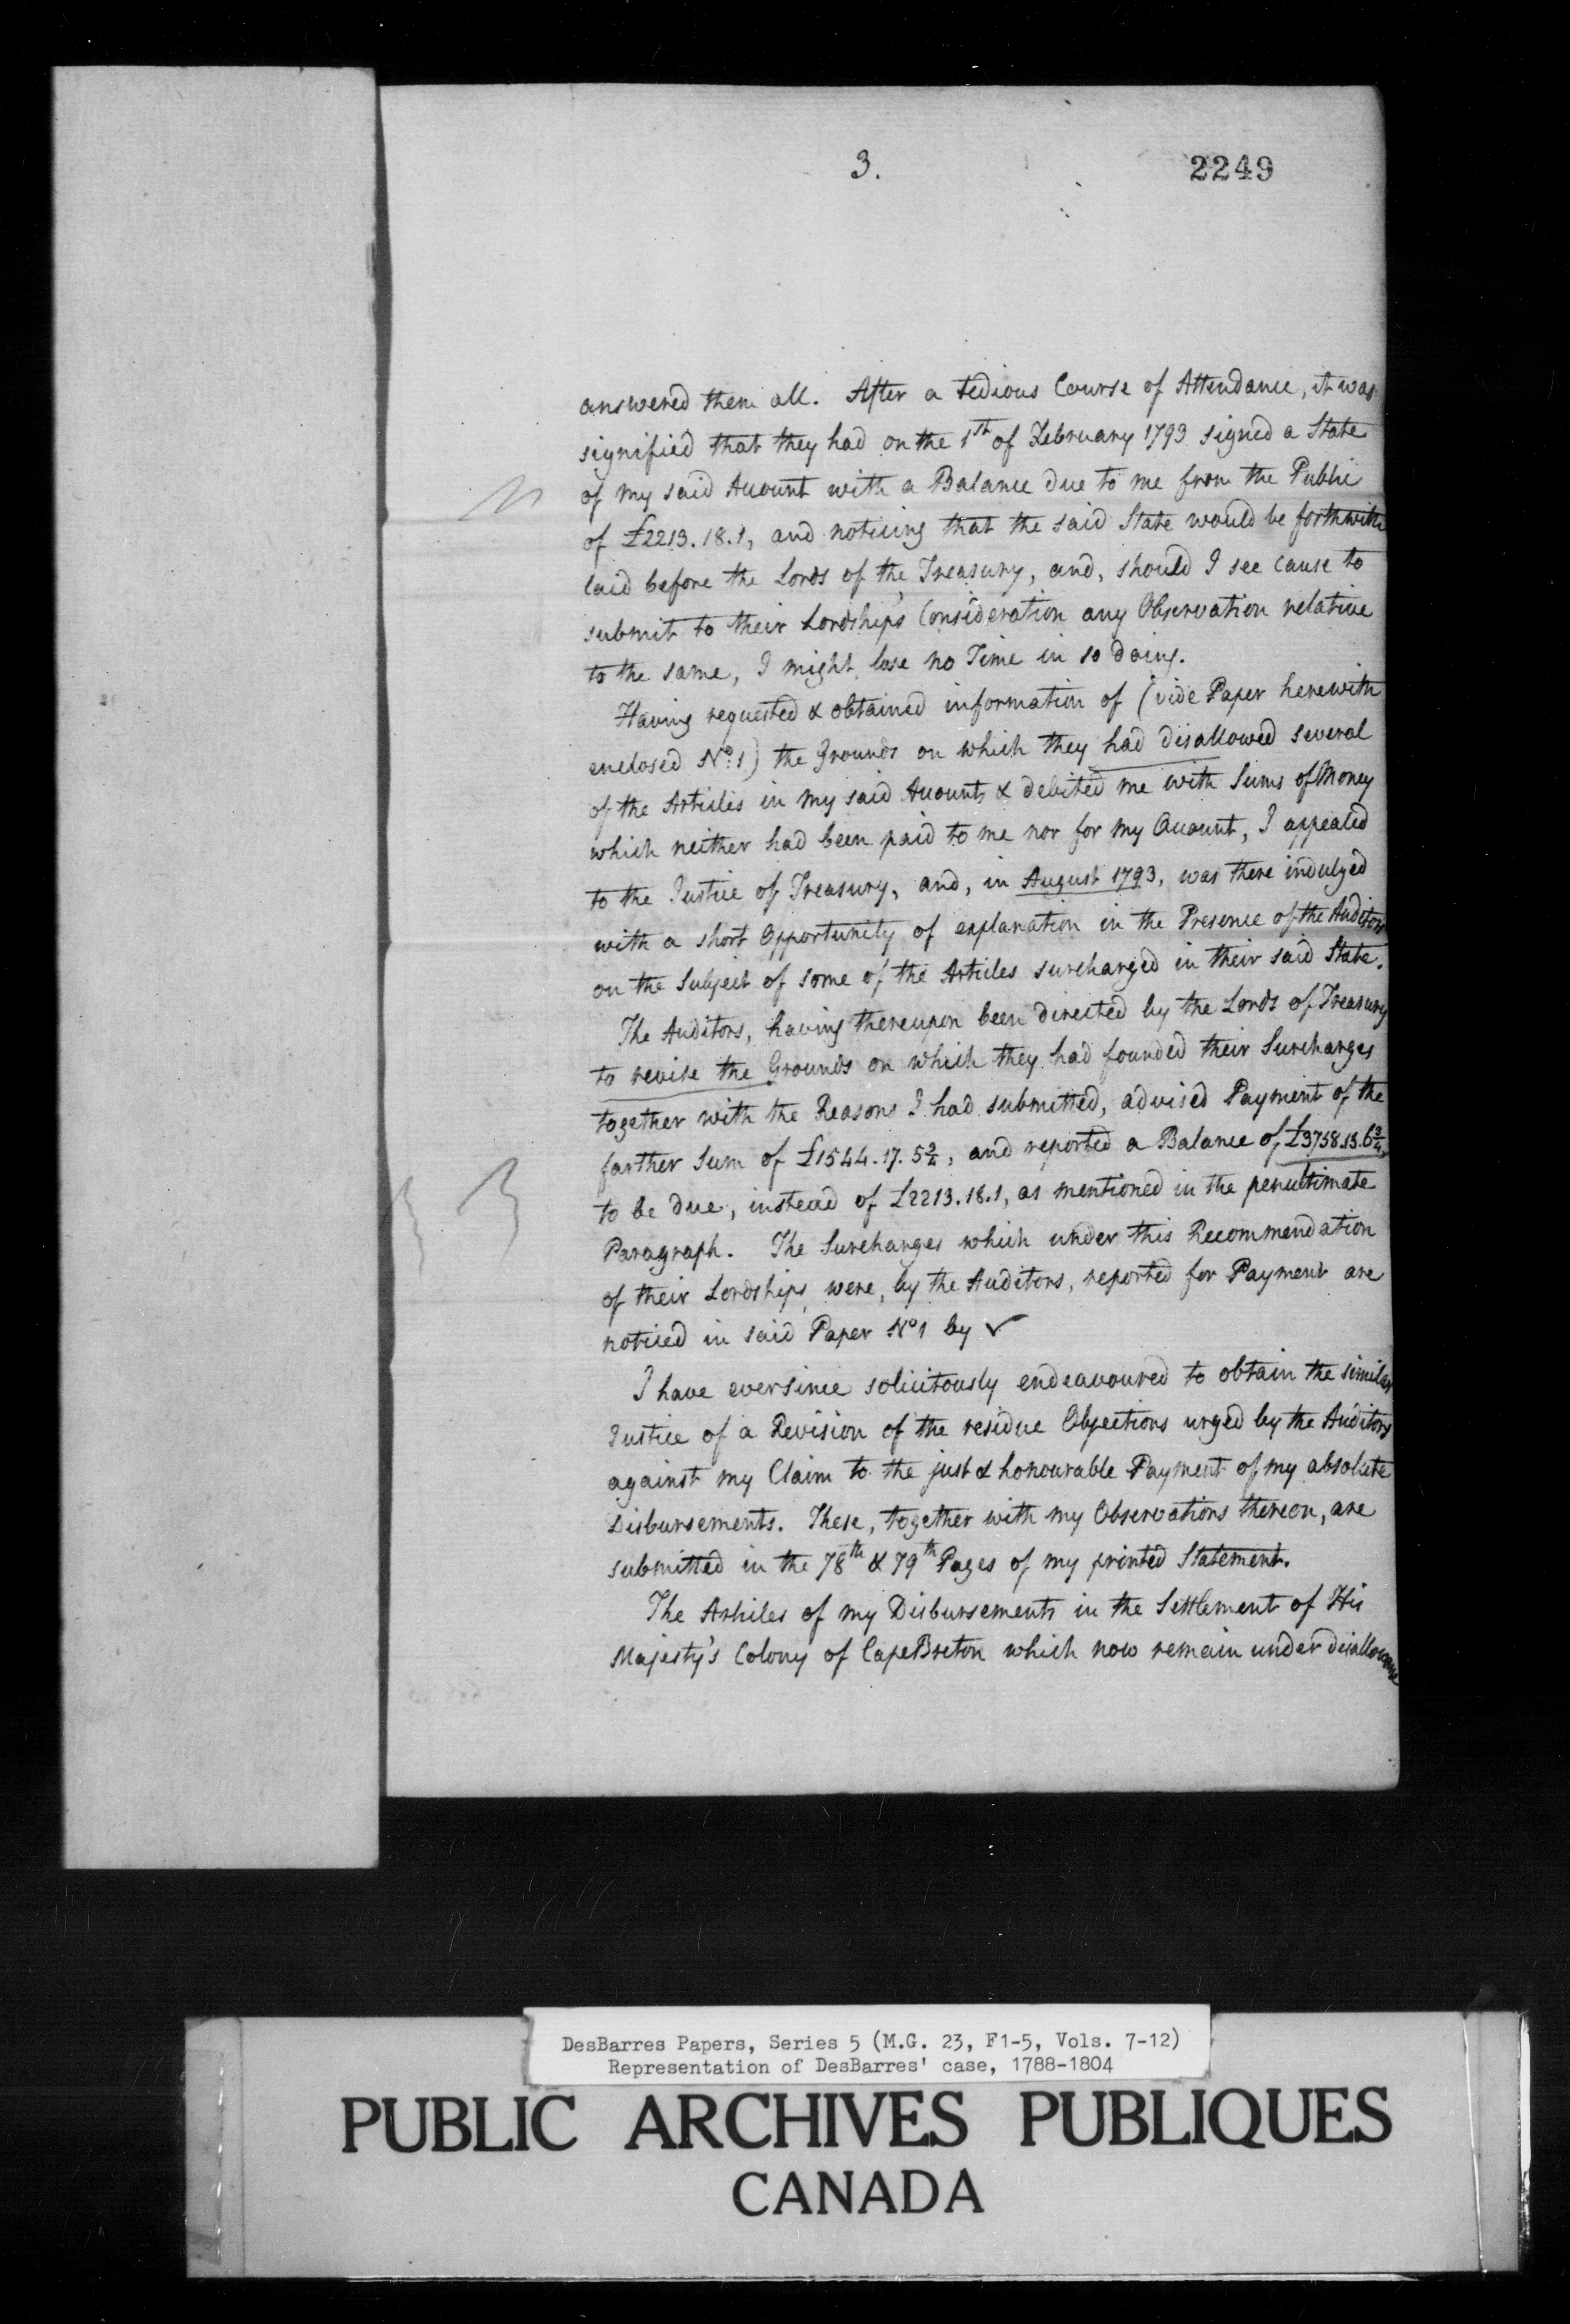 3.
2249
answered them all. After a tedious Course of Attendance, it was
signified that they had on the 1th of February 1793 signed a State
of my said Account with a Balance due to me from the Public
of £2213.18.1, and noticing that the said State would be forthwith
laid before the Lords of the Treasury, and, should I see cause to
submit to their Lordships' Consideration any Observation relative
to the same, I might lose no Time in so doing.
Having requested & obtained information of (vide Paper herewith
enclosed No. 1) the Grounds on which they had disallowed several
of the Articles in my said Accounts & debited me with Sums of Money
which neither had been paid to me nor for my Account, I appealed
to the Justice of Treasury, and, in August 1793, was there indulged
with a short Opportunity of explanation in the Presence of the Auditors
on the Subject of some of the Articles surcharged in their said State.
The Auditors, having thereupon been directed by the Lords of Treasury
to revise the Grounds on which they had founded their Surcharges
together with the Reasons I had submitted, advised Payment of the
farther Sum of £1544.17.5¾, and reported a Balance of £3758.15.6¾,
to be due, instead of £2213.18.1, as mentioned in the penultimate
Paragraph. The Surcharges which under this Recommendation
of their Lordships, were, by the Auditors, reported for Payment are
noticed in said Paper No 1 by ✓
I have eversince solicitously endeavoured to obtain the similar
Justice of a Revision of the residue Objections urged by the Auditors
against my Claim to the just & honourable Payment of my absolute
Disbursements. These, together with my Observations thereon, are
submitted in the 78th & 79th Pages of my printed Statement.
The Articles of my Disbursements in the Settlement of His
Majesty's Colony of CapeBreton which now remain under disallowance
DesBarres Papers, Series 5 (M.G. 23, F1-5, Vols. 7-12)
Representation of DesBarres' case, 1788-1804
PUBLIC ARCHIVES PUBLIQUES
CANADA